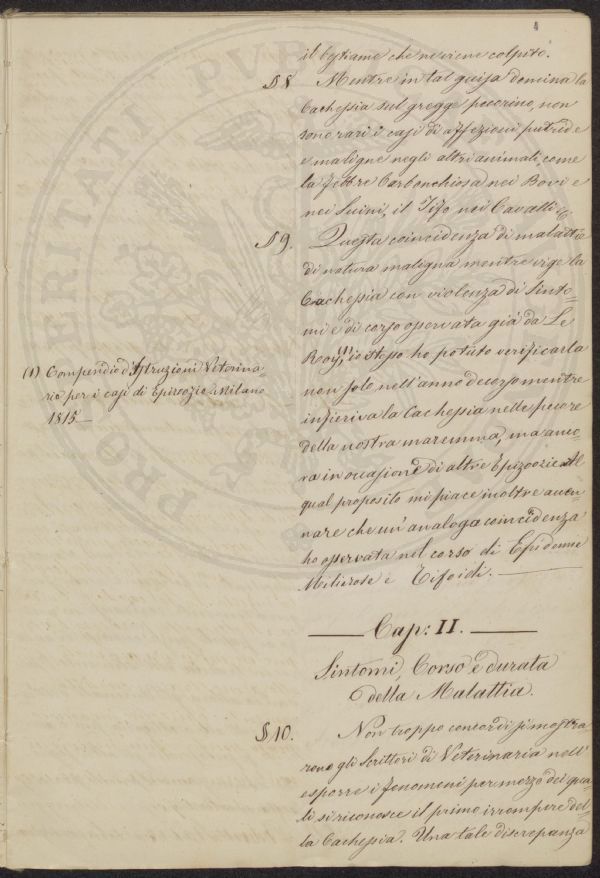 4
il bestiame che ne viene colpito.
§ 8. Mentre in tal guisa domina la
Cachessia sul gregge pecorino, non
sono rari i casi di affezioni putride
e maligne negli altri animali, come
la febbre Carbonchiosa nei Bovi e
nei Suini, il Tifo nei Cavalli &
§ 9. Questa coincidenza di malattie
di natura maligna mentre vige la
Cachessia con violenza di Sinto-
mi e di corso osservata già da Le
Roy(1), io stesso ho potuto verificarla
non solo nell'anno decorso mentre
infieriva la Cachessia nelle pecore
della nostra maremma, ma anco-
ra in occasione di altre Epizoozie. Al
qual proposito mi piace inoltre accen-
nare che un'analoga coincidenza
ho osservata nel corso di Epidemie
Miliarose e Tifoidi.
(1) Compendio d'Istruzioni Veterina-
rie per i casi di Epizoozie. Milano
1815
Cap: II.
Sintomi, Corso e durata
della Malattia.
§ 10. Non troppo concordi si mostra
rono gli Scrittori di Veterinaria nell'
esporre i fenomeni per mezzo dei qua-
li si riconosce il primo irrompere del-
la Cachessia. Una tale discrepanza
PRO VERITATI PUBLI